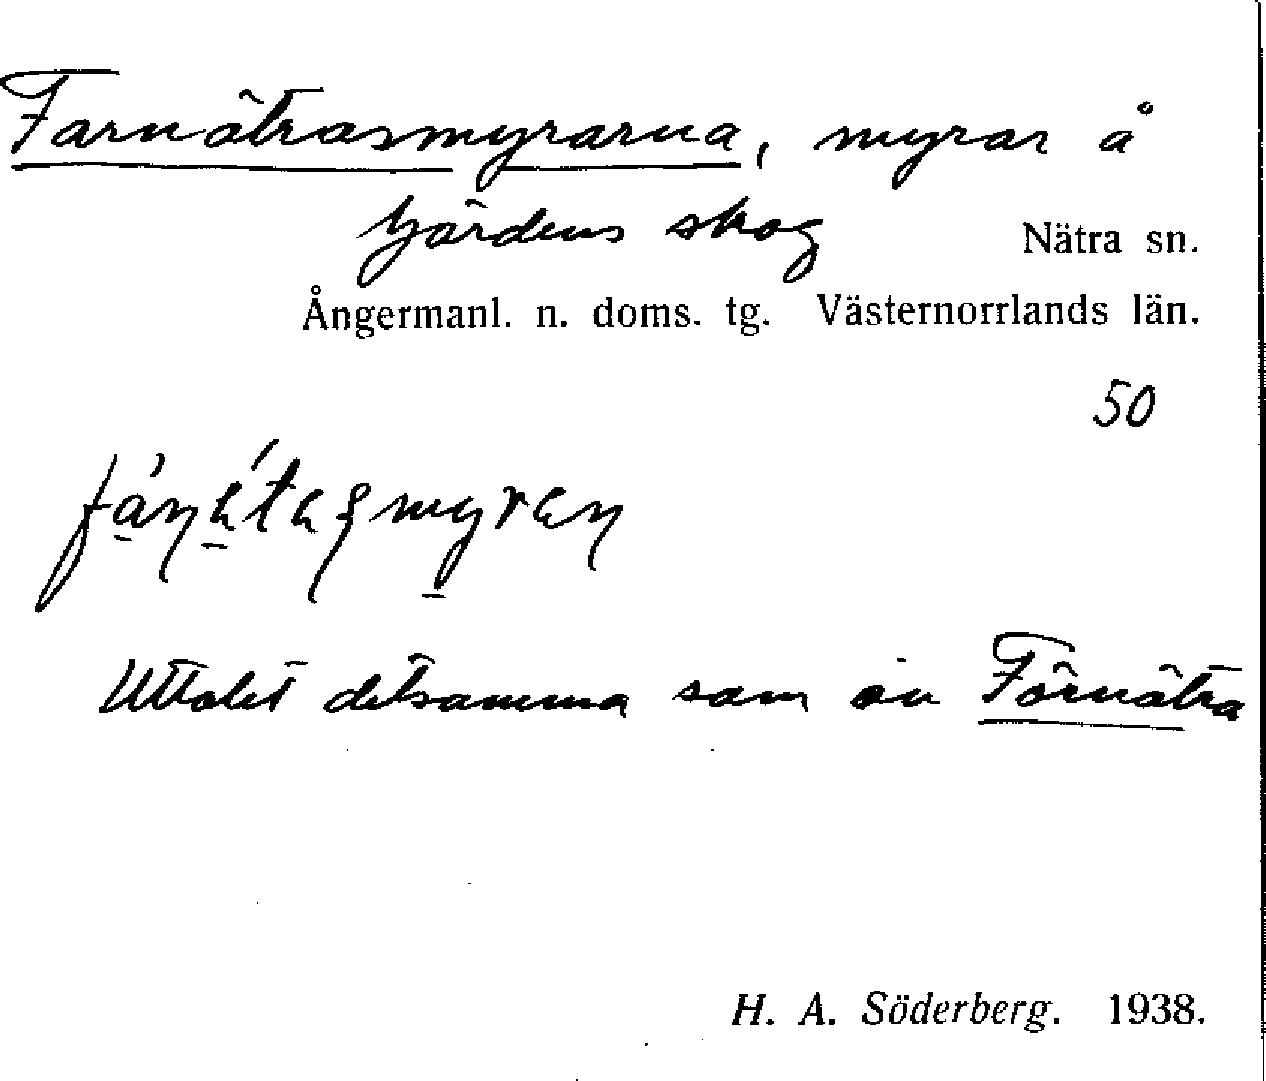 Farnätrasmyrarna, myrar å
Gärdens skog Nätra sn.
Ångermanl. n. doms. tg. Västernorrlands län.
50
Uttalet detsamma som av Förnätra
H. A. Söderberg. 1938.